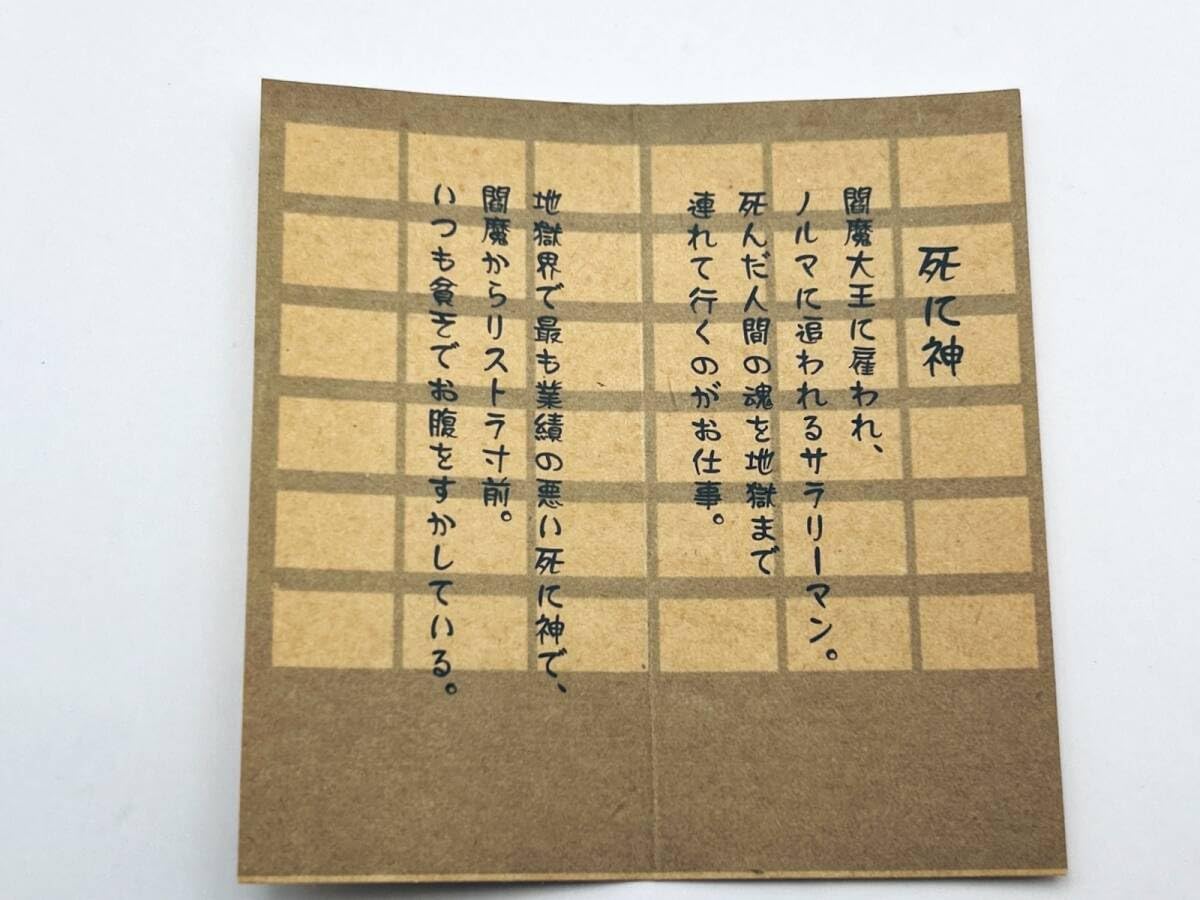 死に神
閻魔大王に雇われ、
ノルマに追われるサラリーマン。
死んだ人間の魂を地獄まで
連れて行くのがお仕事。
地獄界で最も業績の悪い死に神で、
閻魔からリストラ寸前。
いつも貧乏でお腹をすかしている。